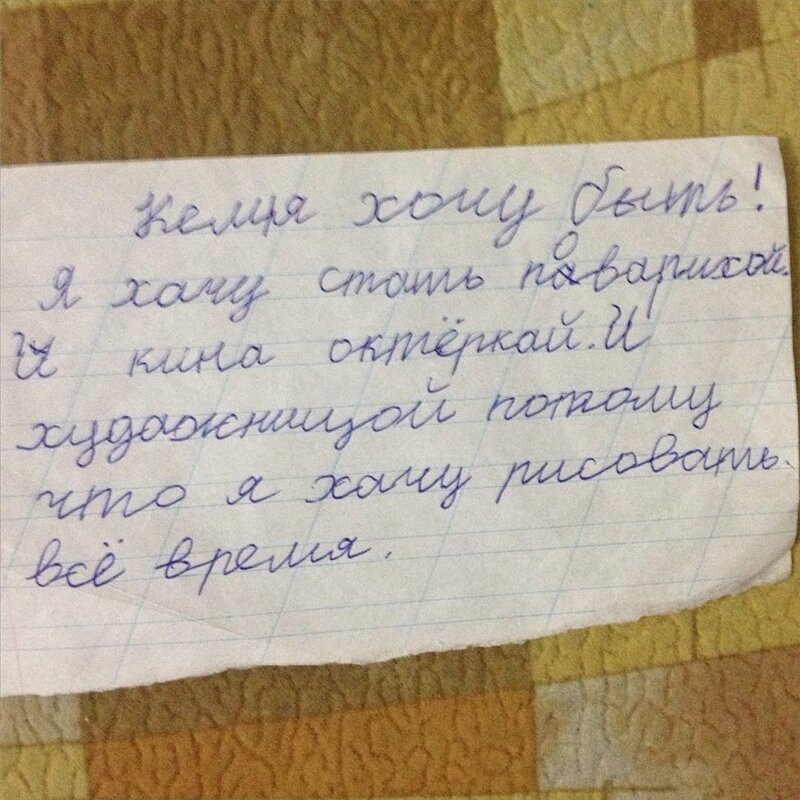 Кемця хочу быть!
Я хачу стать поварихой.
И кина октёркай. И
художницой потому
что я хачу рисовать.
всё время.